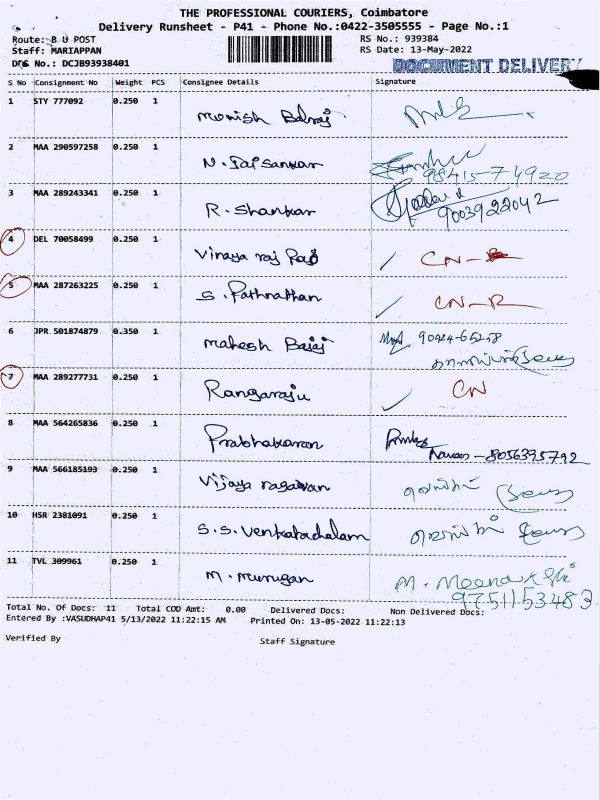 THE PROFESSIONAL COURIERS, Coimbatore
Delivery Runsheet - P41 - Phone No.:0422-3505555 - Page No.:1
Route: B U POST
RS No.: 939384
Staff: MARIAPPAN
RS Date: 13-May-2022
DRS No.: DCJB93938401
DOCUMENT DELIVERY
S No Consignment No Weight PCS Consignee Details Signature
1 STY 777092 0.250 1 Monish Balraj
2 MAA 290597258 0.250 1 N. Jaisankar 98415-74920
3 MAA 289243341 0.250 1 R. Shankar 9003922042
4 DEL 70058499 0.250 1 Vinaya raj CN-R
5 MAA 287263225 0.250 1 S. Pathnathan CN-R
6 JPR 501874879 0.350 1 Mahesh Bajaj
7 MAA 289277731 0.250 1 Rangaraju CN
8 MAA 564265836 0.250 1 Prabhakaran 8056395792
9 MAA 566185193 0.250 1 Vijaya ragavan
10 HSR 2381091 0.250 1 S.S. Venkatachalam
11 TVL 309961 0.250 1 M. Murugan M. Meenakshi
9751153483
Total No. Of Docs: 11 Total COD Amt: 0.00 Delivered Docs: Non Delivered Docs:
Entered By :VASUDHAP41 5/13/2022 11:22:15 AM Printed On: 13-05-2022 11:22:13
Verified By Staff Signature